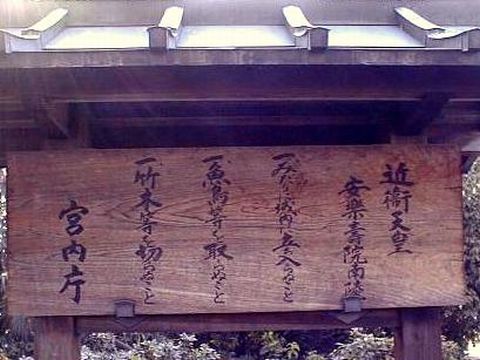 近衞天皇
安樂壽院南陵
一、みだりに域内に立入らぬこと
一、魚鳥等を取らぬこと
一、竹木等を切らぬこと
宮内庁